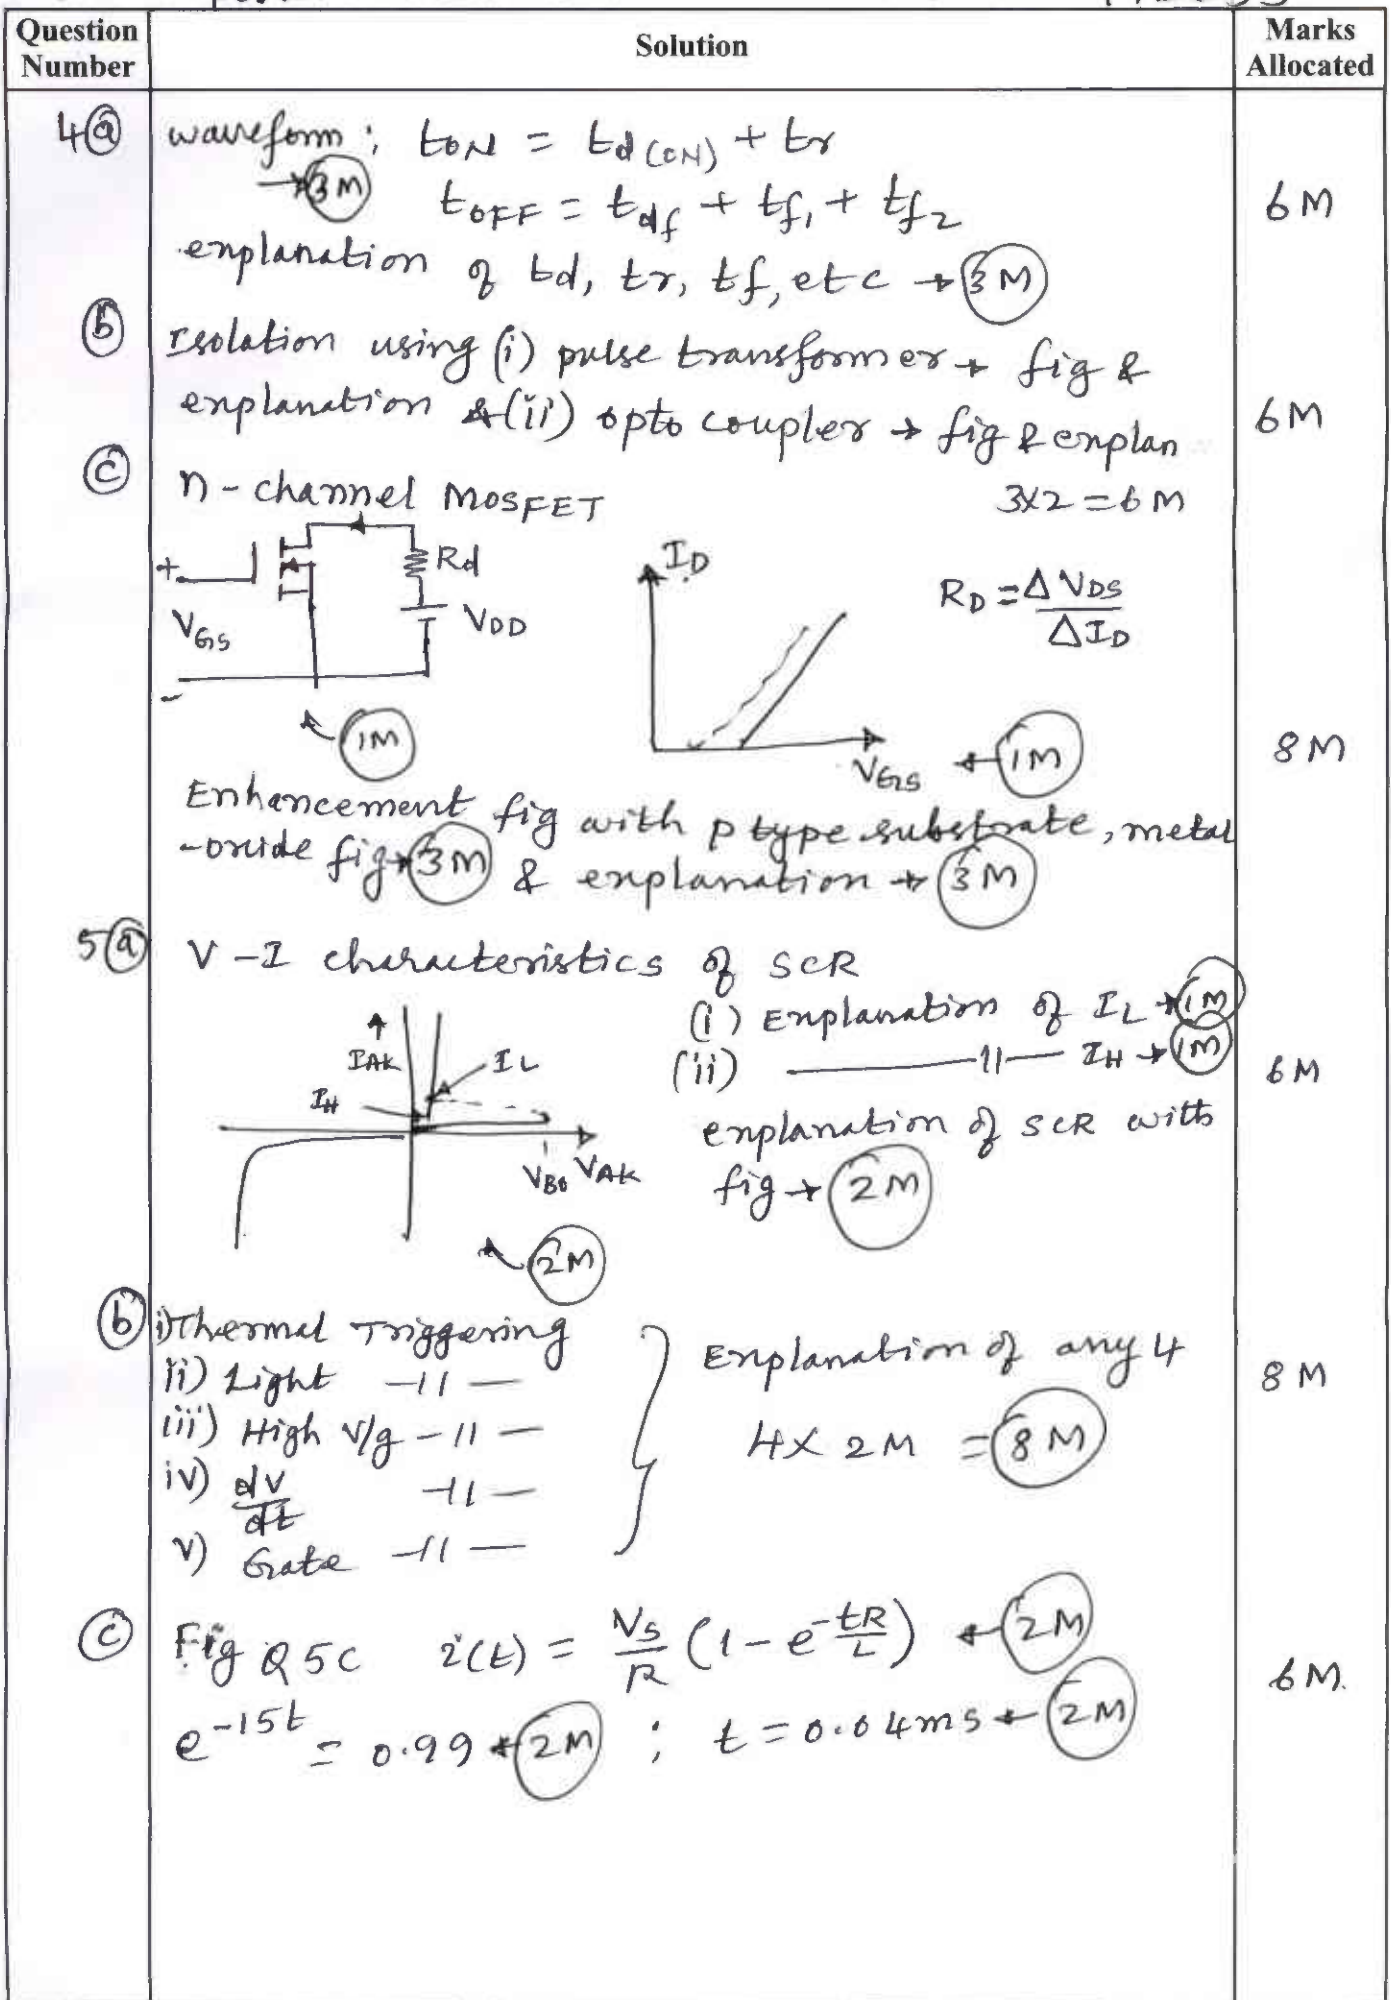 Question Number
Solution
Marks Allocated
4ⓐ waveform; tON = td(ON) + tr
→ 3M
tOFF = tdf + tf1 + tf2
6M
explanation of td, tr, tf, etc → 3M
ⓑ Isolation using (i) pulse transformer → fig &
explanation & (ii) opto coupler → fig & explan
6M
3x2 = 6M
ⓒ n-channel MOSFET
+
VGS
-
Rd
VDD
1M
ID
VGS
1M
RD = ΔVDS / ΔID
8M
Enhancement fig with p type substrate, metal
-oxide fig → 3M & explanation → 3M
5ⓐ V-I characteristics of SCR
(i) Explanation of IL → 1M
(ii) —— 11 —— IH → 1M
6M
explanation of SCR with
fig → 2M
IAK
IL
IH
VB0
VAK
2M
ⓑ i) Thermal Triggering
ii) Light —11—
iii) High V/g —11—
iv) dv/dt —11—
v) Gate —11—
Explanation of any 4
4 x 2M = 8M
8M
ⓒ Fig Q5c i(t) = Vs/R (1 - e^-tR/L) ← 2M
6M.
e^-15t = 0.99 ← 2M ; t = 0.04ms ← 2M